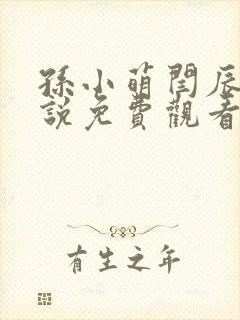 孫小萌閆辰
說免費觀看
有生之年